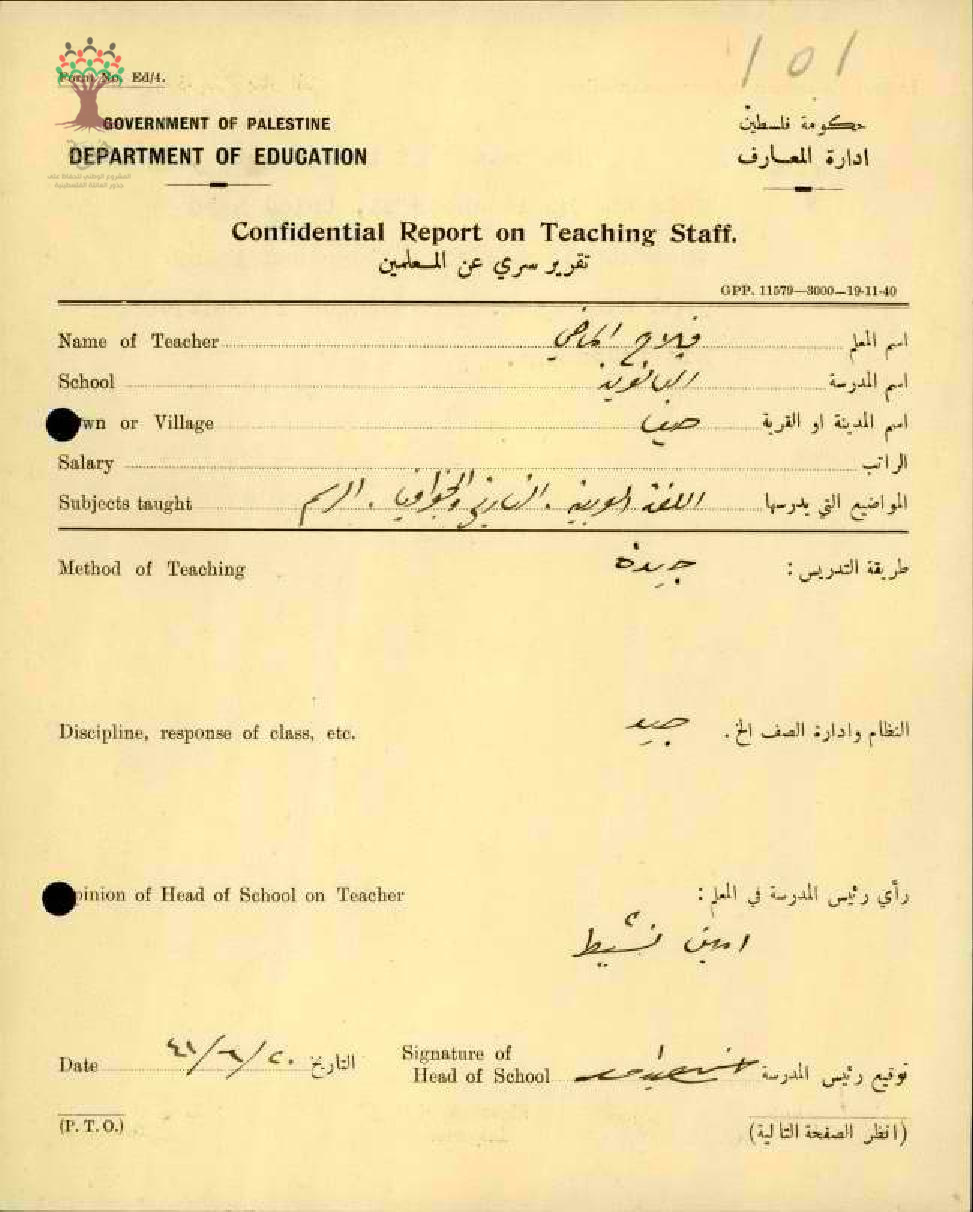 101
Form No. Ed/4.
GOVERNMENT OF PALESTINE
حكومة فلسطين
DEPARTMENT OF EDUCATION
ادارة المعارف
المشروع الوطني للحفاظ على
جذور العائلة الفلسطينية
Confidential Report on Teaching Staff.
تقرير سري عن المعلمين
GPP. 11579—3000—19-11-40
Name of Teacher فلاح الماضي اسم المعلم
School الثانوية اسم المدرسة
Town or Village اسم المدينة او القرية
Salary الراتب
Subjects taught اللغة العربية . التاريخ والجغرافيا . الرسم المواضيع التي يدرسها
Method of Teaching جيدة طريقة التدريس :
Discipline, response of class, etc. جيد النظام وادارة الصف الخ .
Opinion of Head of School on Teacher رأي رئيس المدرسة في المعلم :
امين نشيط
Date ٢٠/٦/٤١ التاريخ
Signature of Head of School توقيع رئيس المدرسة
(P. T. O.) (انظر الصفحة التالية)